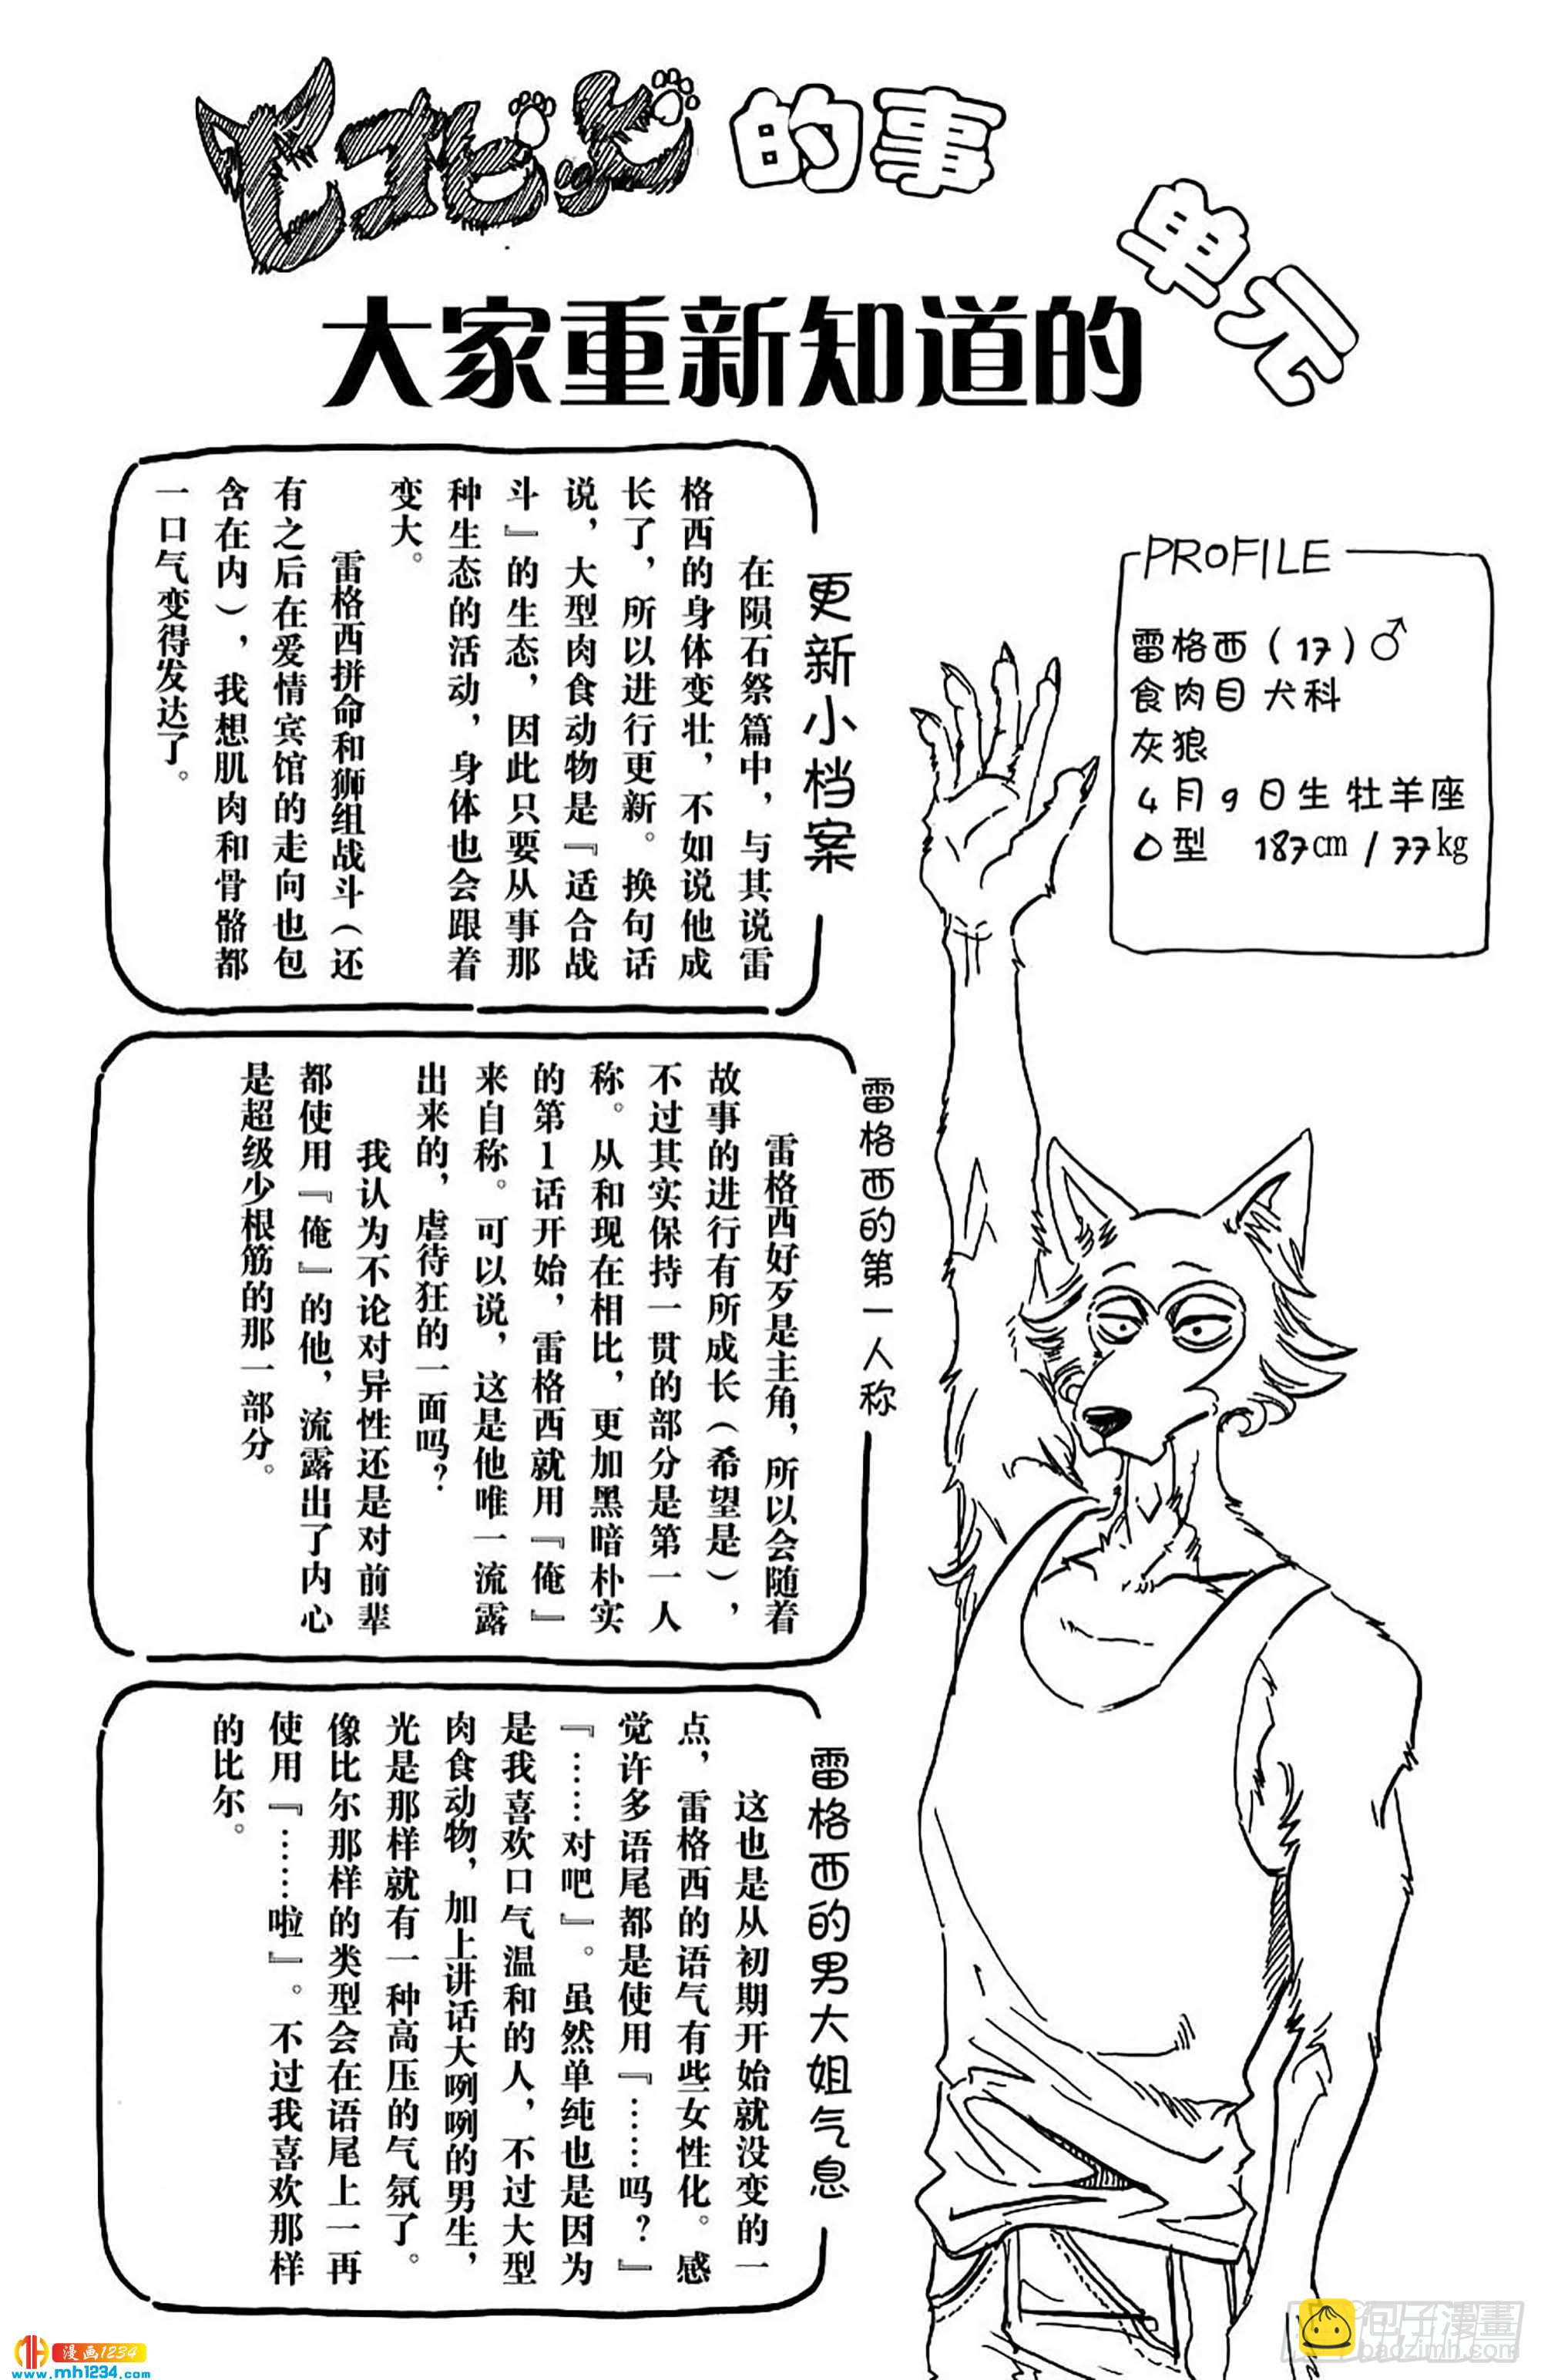 的事
单元
大家重新知道的
PROFILE
雷格西(17)♂
食肉目 犬科
灰狼
4月9日生 牡羊座
O型 187cm / 77kg
更新小档案
在陨石祭篇中，与其说雷
格西的身体变壮，不如说他成
长了，所以进行更新。换句话
说，大型肉食动物是『适合战
斗』的生态，因此只要从事那
种生态的活动，身体也会跟着
变大。
雷格西拼命和狮组战斗（还
有之后在爱情宾馆的走向也包
含在内），我想肌肉和骨骼都
一口气变得发达了。
雷格西的第一人称
雷格西好歹是主角，所以会随着
故事的进行有所成长（希望是），
不过其实保持一贯的部分是第一人
称。从和现在相比，更加黑暗朴实
的第1话开始，雷格西就用『俺』
来自称。可以说，这是他唯一流露
出来的，虐待狂的一面吗？
我认为不论对异性还是对前辈
都使用『俺』的他，流露出了内心
是超级少根筋的那一部分。
雷格西的男大姐气息
这也是从初期开始就没变的一
点，雷格西的语气有些女性化。感
觉许多语尾都是使用『……吗？』
『……对吧』。虽然单纯也是因为
是我喜欢口气温和的人，不过大型
肉食动物，加上讲话大咧咧的男生，
光是那样就有一种高压的气氛了。
像比尔那样的类型会在语尾上一再
使用『……啦』。不过我喜欢那样
的比尔。
漫画1234
www.mh1234.com
包子漫畫
baozimh.com